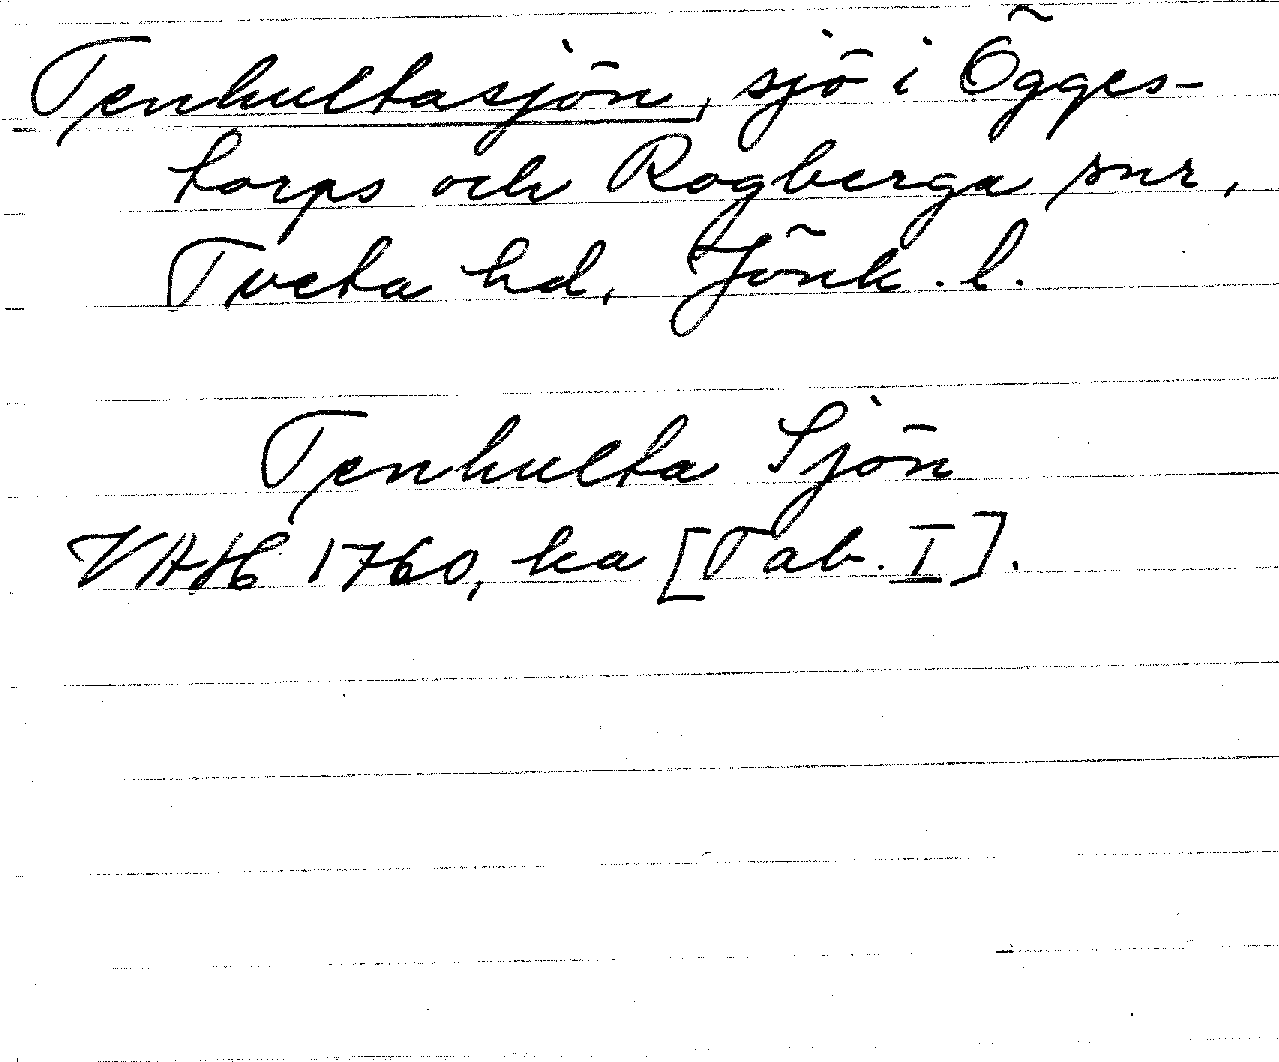 Tenhultasjön, sjö i Ögges-
torps och Rogberga snr,
Tveta hd, Jönk. l.
Tenhulta Sjön
VAH 1760, ka [Tab. I].